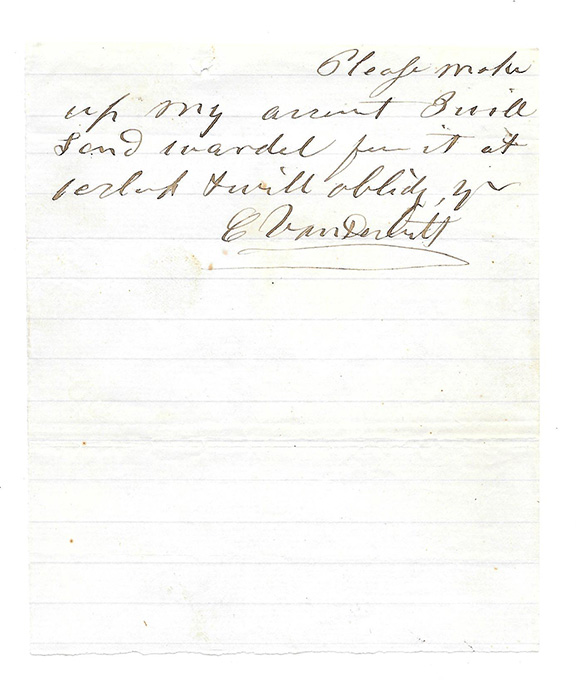 Please make
up my account I will
send wardel for it at
& will oblidg yr
C Vanderbilt